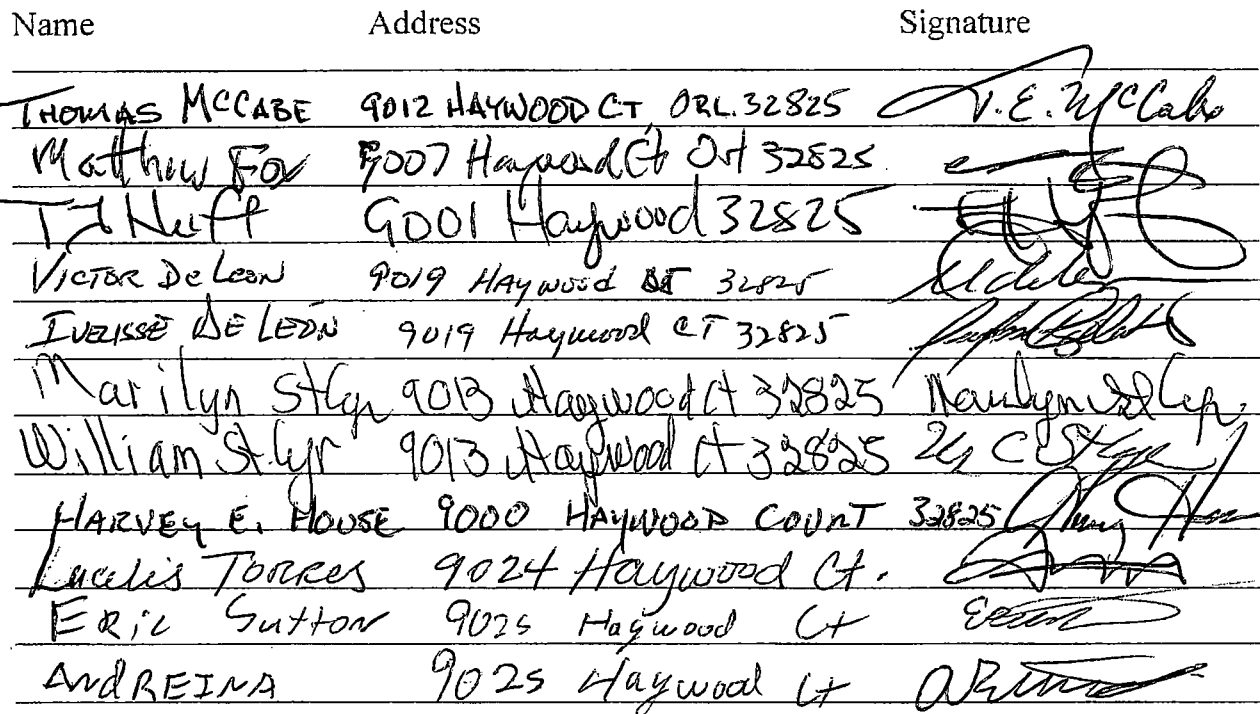 Name Address Signature
THOMAS MCCABE 9012 HAYWOOD CT, ORL. 32825 T. E. McCabe
Matthew Fox 9007 Haywood Ct Orl 32825
TJ Neff 9001 Haywood 32825
VICTOR De LEON 9019 HAywood CT 32825
IVELISSE DE LEÓN 9019 Haywood CT 32825
Marilyn StCyr 9013 Haywood Ct 32825 Marilyn St Cyr
William St Cyr 9013 Haywood Ct 32825 C StCyr
HARVEY E. HOUSE 9000 HAYWOOD COURT 32825
Lucelis TORRES 9024 Haywood Ct.
ERiC SuttoN 9025 Haywood Ct
ANdREINA 9025 Haywood Ct